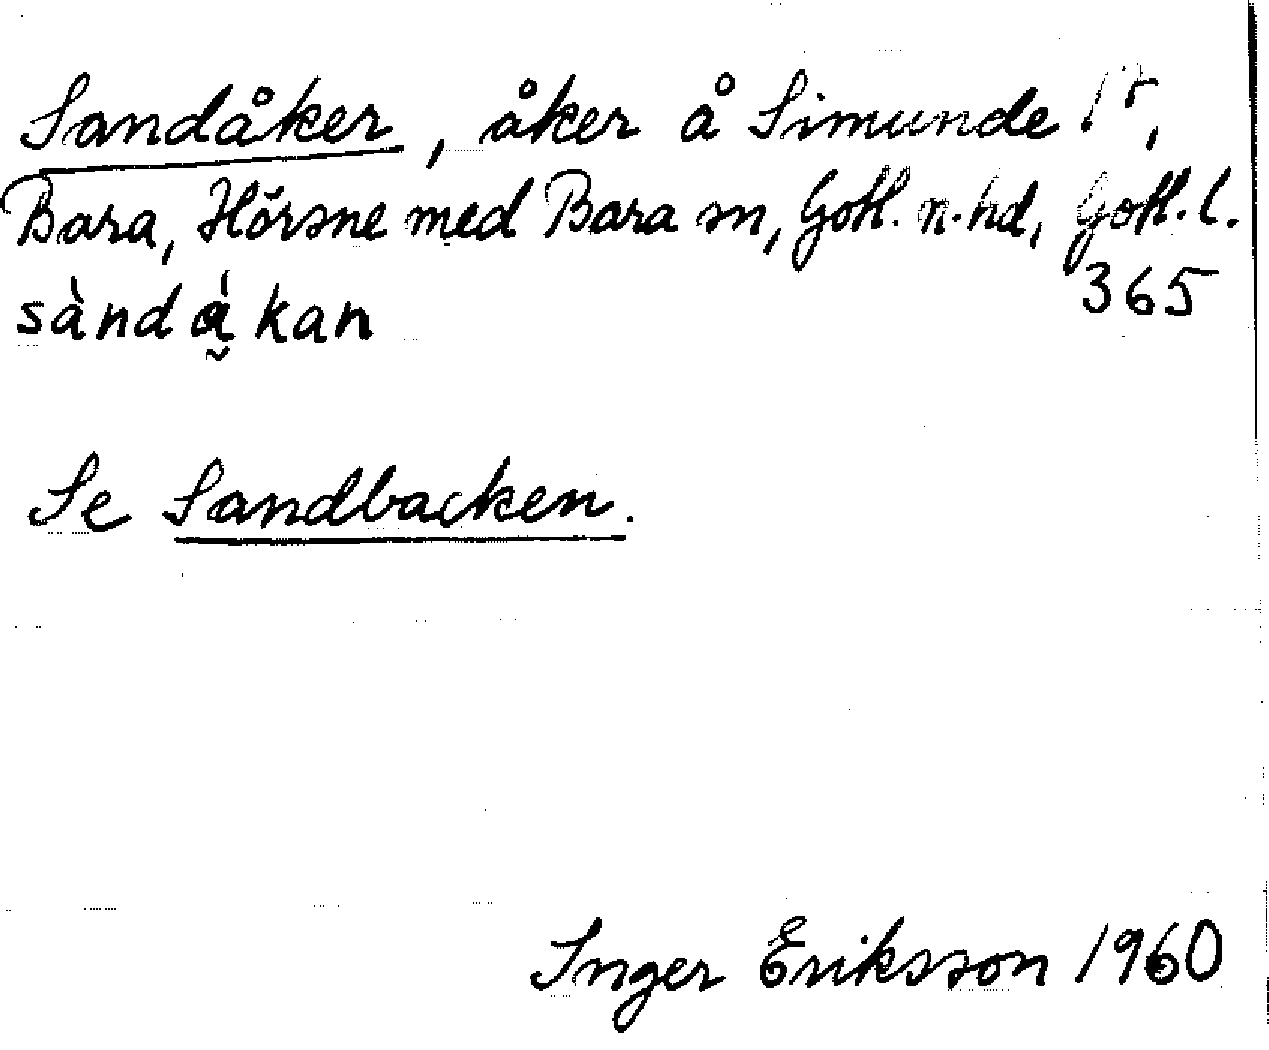 Sandåker, åker å Simunde 1⁴,
Bara, Hörsne med Bara sn, Gotl. n. hd, Gotl. l.
365
sàndá̰kan
Se Sandbacken.
Inger Eriksson 1960